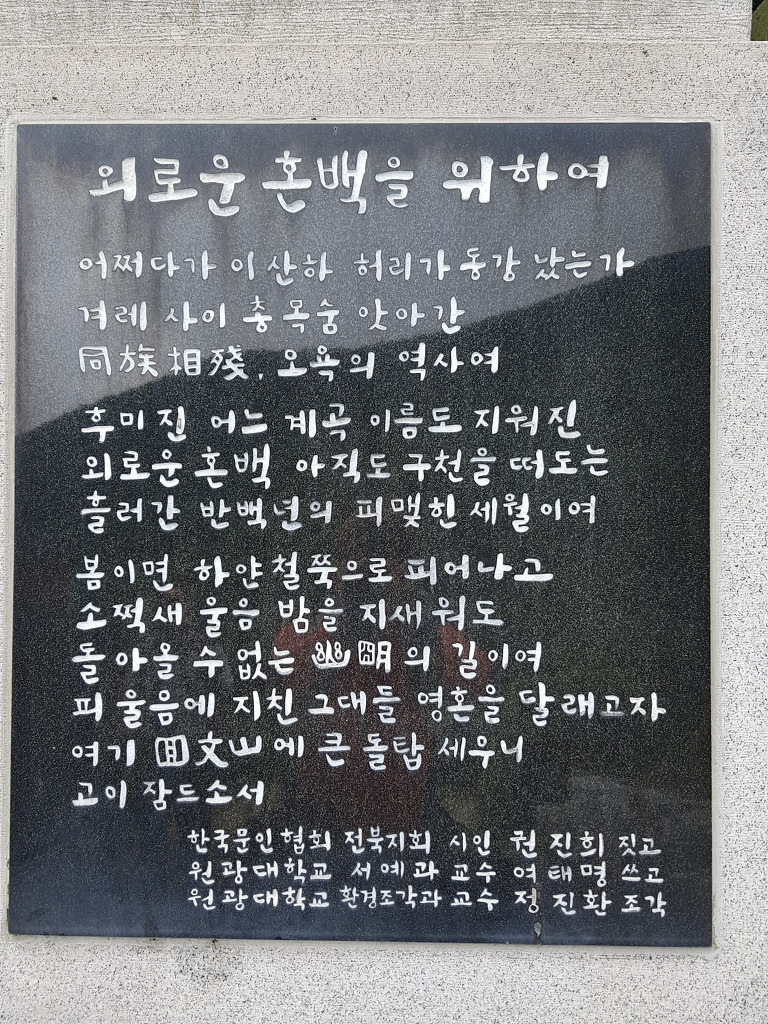 외로운 혼백을 위하여
어쩌다가 이 산하 허리가 동강 났는가
겨레 사이 총 목숨 앗아간
同族相殘, 오욕의 역사여
후미진 어느 계곡 이름도 지워진
외로운 혼백 아직도 구천을 떠도는
흘러간 반백년의 피맺힌 세월이여
봄이면 하얀 철쭉으로 피어나고
소쩍새 울음 밤을 지새워도
돌아올 수 없는 幽明의 길이여
피 울음에 지친 그대들 영혼을 달래고자
여기 回文山에 큰 돌탑 세우니
고이 잠드소서
한국문인협회 전북지회 시인 권진희 짓고
원광대학교 서예과 교수 여태명 쓰고
원광대학교 환경조각과 교수 정진환 조각